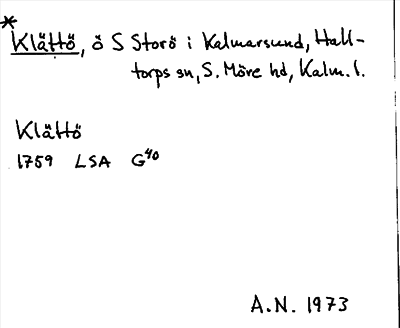 *
Klättö, ö S Storö i Kalmarsund, Hall-
torps sn, S. Möre hd, Kalm. l.
Klättö
1759 LSA G40
A.N. 1973